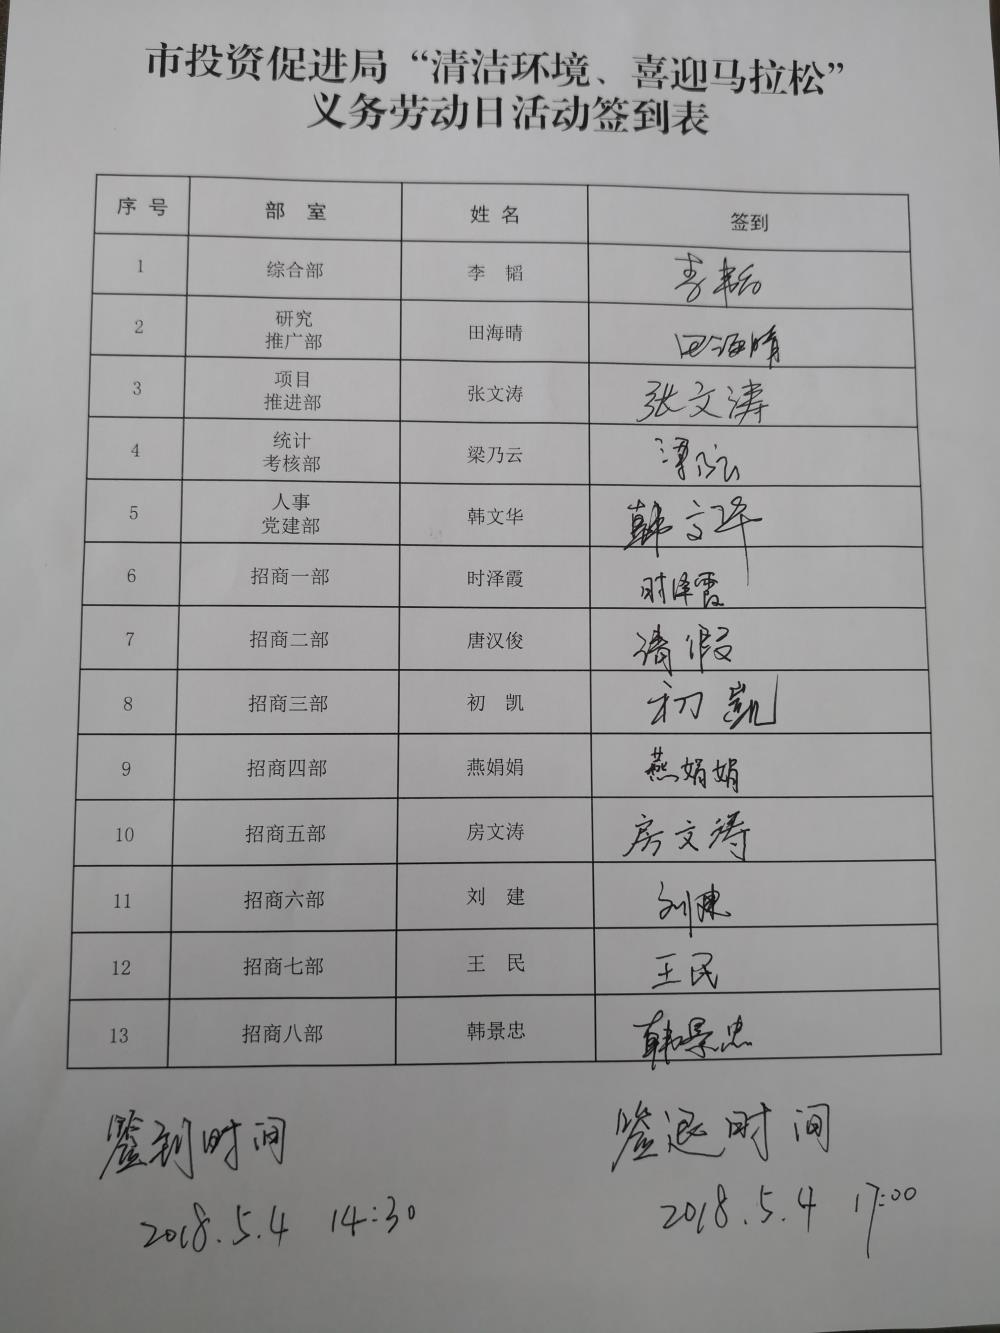 市投资促进局“清洁环境、喜迎马拉松”
义务劳动日活动签到表
序号 部室 姓名 签到
1 综合部 李韬 李韬
2 研究
推广部 田海晴 田海晴
3 项目
推进部 张文涛 张文涛
4 统计
考核部 梁乃云 梁乃云
5 人事
党建部 韩文华 韩文华
6 招商一部 时泽霞 时泽霞
7 招商二部 唐汉俊 请假
8 招商三部 初凯 初凯
9 招商四部 燕娟娟 燕娟娟
10 招商五部 房文涛 房文涛
11 招商六部 刘建 刘建
12 招商七部 王民 王民
13 招商八部 韩景忠 韩景忠
签到时间 签退时间
2018.5.4 14:30 2018.5.4 17:00